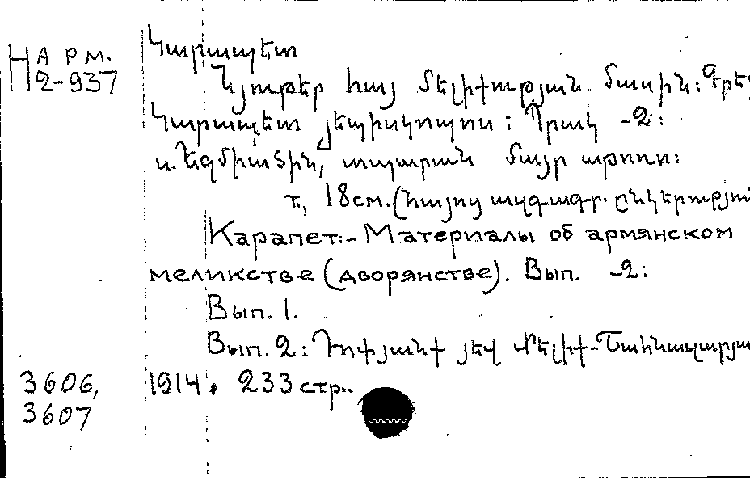 Н АРМ.
2-937
Կարապետ
Նյութեր հայ մելիքության մասին: Գրեց
Կարապետ յեպիսկոպոս: Պրակ -2:
Ս. Եջմիածին, տպարան մայր աթոռո:
т., 18см. (Հայոց ազգագր. ընկերությու
Карапет:- Материалы об армянском
меликстве (дворянстве). Вып. -2:
Вып. 1.
Вып. 2: Դոփյանք յեվ Մելիք-
3606, 1914. 233 стр..
3607